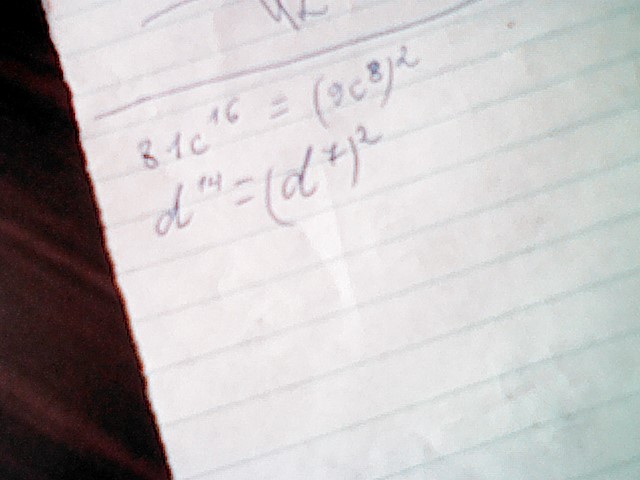 81c¹⁶ = (9c⁸)²
d¹⁴ = (d⁷)²